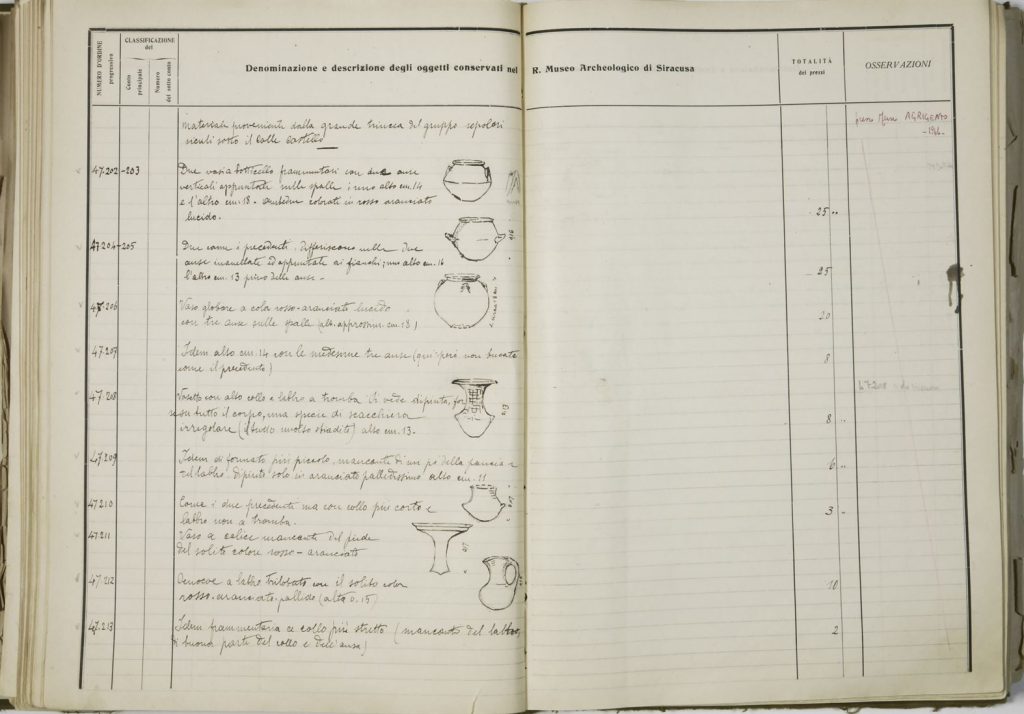 NUMERO D'ORDINE progressivo
CLASSIFICAZIONE del
Conto principale
Numero del sotto conto
Denominazione e descrizione degli oggetti conservati nel R. Museo Archeologico di Siracusa
TOTALITÀ dei prezzi
OSSERVAZIONI
Materiale proveniente dalla grande trincea del gruppo sepolcri
siculi sotto il Colle Castello
Museo AGRIGENTO
47.202-203 Due vasi a botticello frammentari con due anse
verticali appuntate sulle spalle; uno alto cm. 14
e l'altro cm. 18. Ambedue colorati in rosso aranciato
lucido. 25
47.204-205 Due come i precedenti. Differiscono nelle due
anse ed appuntate ai fianchi; uno alto cm. 16
l'altro cm. 13 privo delle anse - 25
47.206 Vaso globare a color rosso-aranciato lucido
con tre anse sulle spalle (alt. approssim. cm. 18) 20
47.207 Idem alto cm. 14 con le medesime tre anse (qui però non bucate
come il precedente) 8
47.208 Vasetto con alto collo e labbro a tromba. Si vede dipinta,
su tutto il corpo, una specie di scacchiera
irregolare (il tutto molto sbiadito) alto cm. 13. 8
213
47.208
47.209 Idem di formato più piccolo, mancante di un pò della pancia
e del labbro. Dipinto solo in aranciato pallidissimo alto cm. 11 6
47.210 Come i due precedenti ma con collo più corto e
labbro non a tromba. 3
47.211 Vaso a calice mancante del piede
del solito colore rosso-aranciato
47.212 Oenocoe a labbro trilobato con il solito color
rosso-aranciato-pallido (alta 0.15) 10
47.213 Idem frammentaria a collo più stretto (mancante del labbro,
di buona parte del collo e dell'ansa) 2